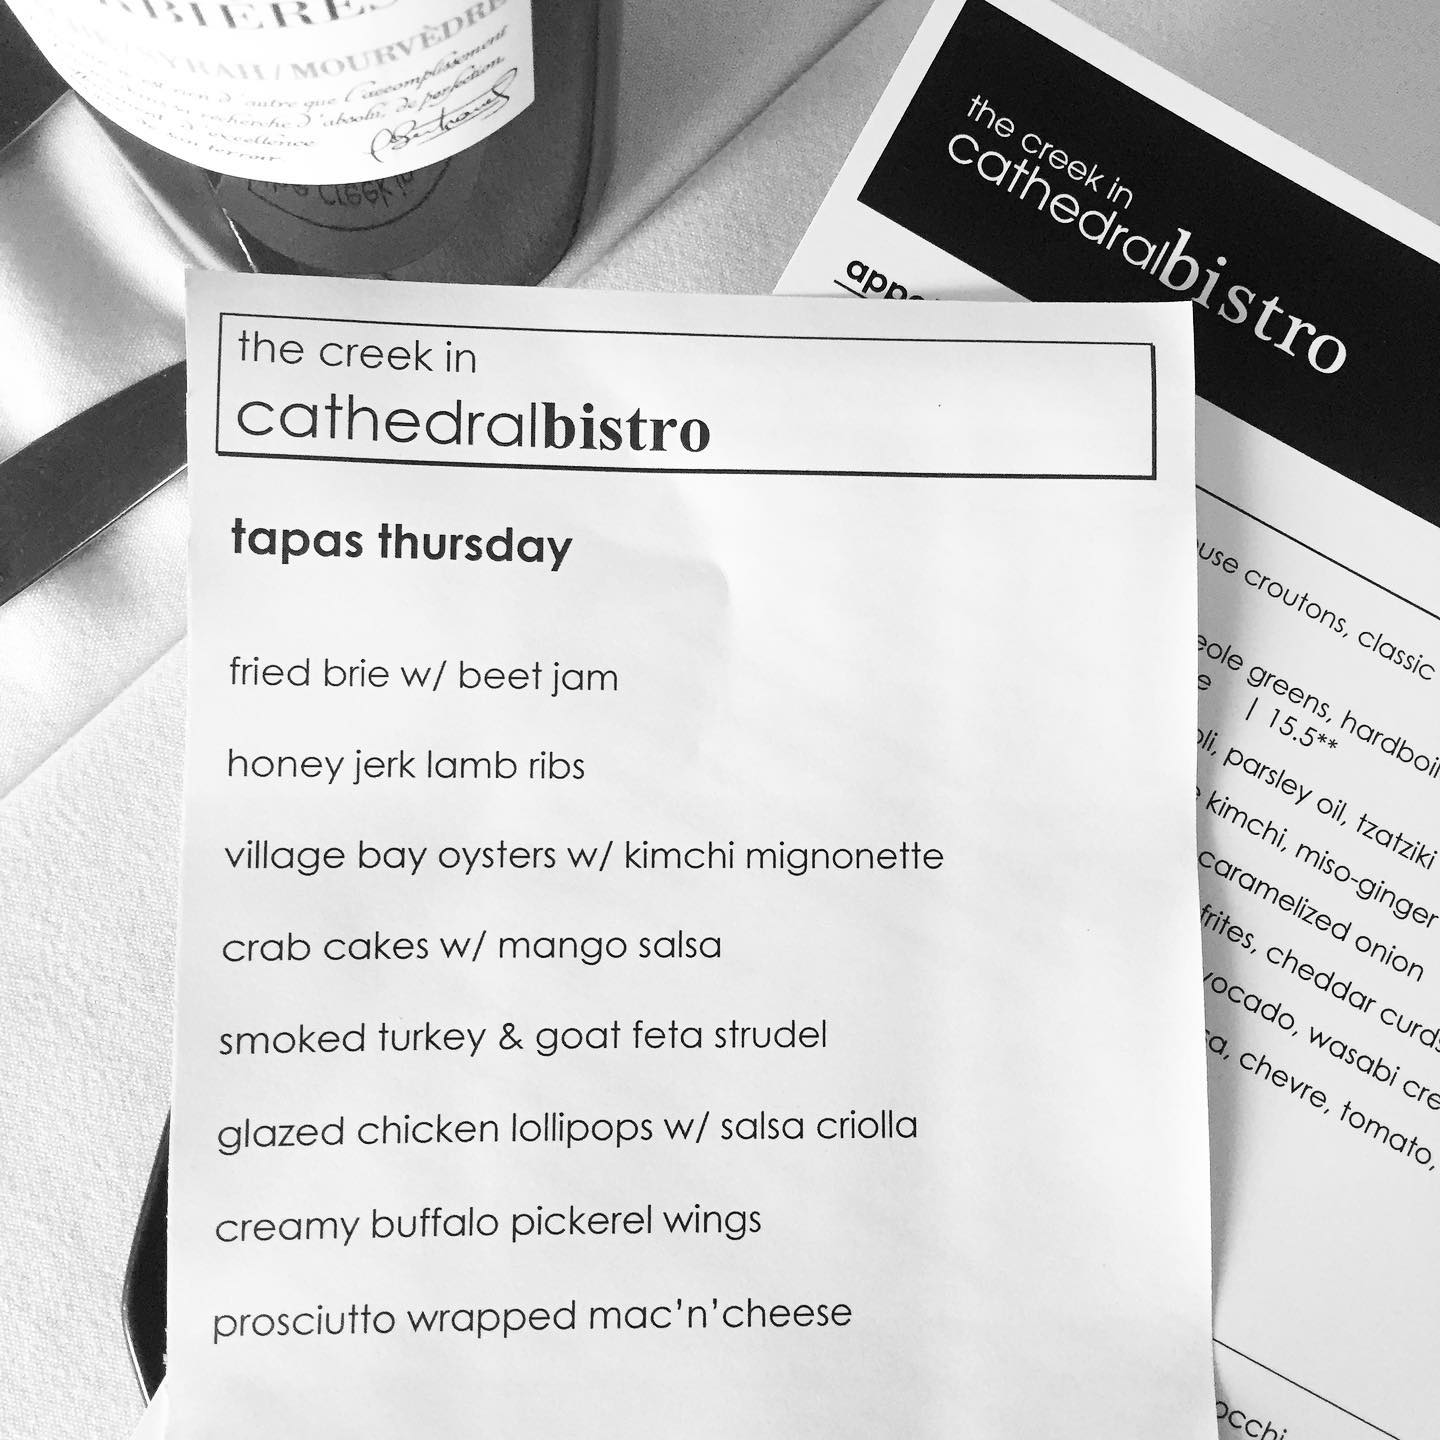 SYRAH / MOURVÈDRE
d'autre que l'accomplissement
recherche d'absolu, de perfection
d'excellence
terroir
the creek in
cathedralbistro
the creek in
cathedralbistro
tapas thursday
fried brie w/ beet jam
honey jerk lamb ribs
village bay oysters w/ kimchi mignonette
crab cakes w/ mango salsa
smoked turkey & goat feta strudel
glazed chicken lollipops w/ salsa criolla
creamy buffalo pickerel wings
prosciutto wrapped mac'n'cheese
croutons, classic
greens,
| 15.5**
parsley oil, tzatziki
kimchi, miso-ginger
caramelized onion
frites, cheddar
wasabi
chevre, tomato,